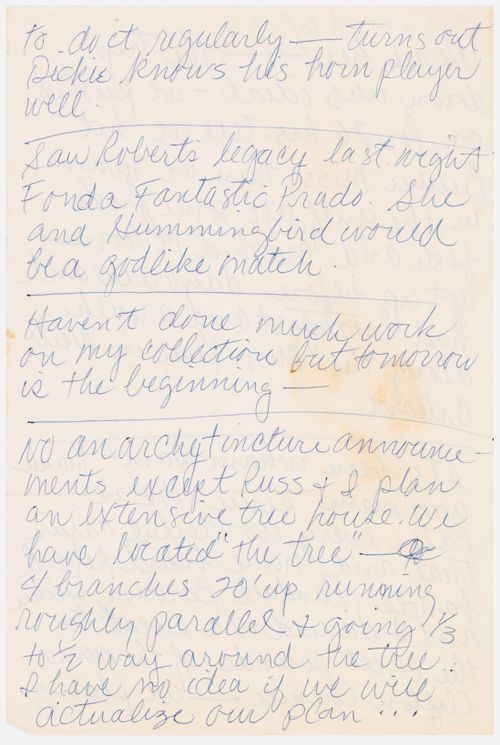 to do it regularly — turns out
Dickie knows his horn player
well.
Saw Robert's legacy last night
Fonda Fantastic Prado. She
and Hummingbird would
be a godlike match.
Haven't done much work
on my collection but tomorrow
is the beginning —
No anarchy tincture announce-
ments except Russ + I plan
an extensive tree house. We
have located "the tree" —
4 branches 20' up running
roughly parallel + going 1/3
to 1/2 way around the tree..
I have no idea if we will
actualize our plan ...